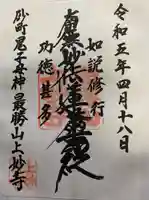 令和五年四月十八日
如説修行
南無妙法蓮華経
功徳甚多
砂町鬼子母神最勝山上妙寺